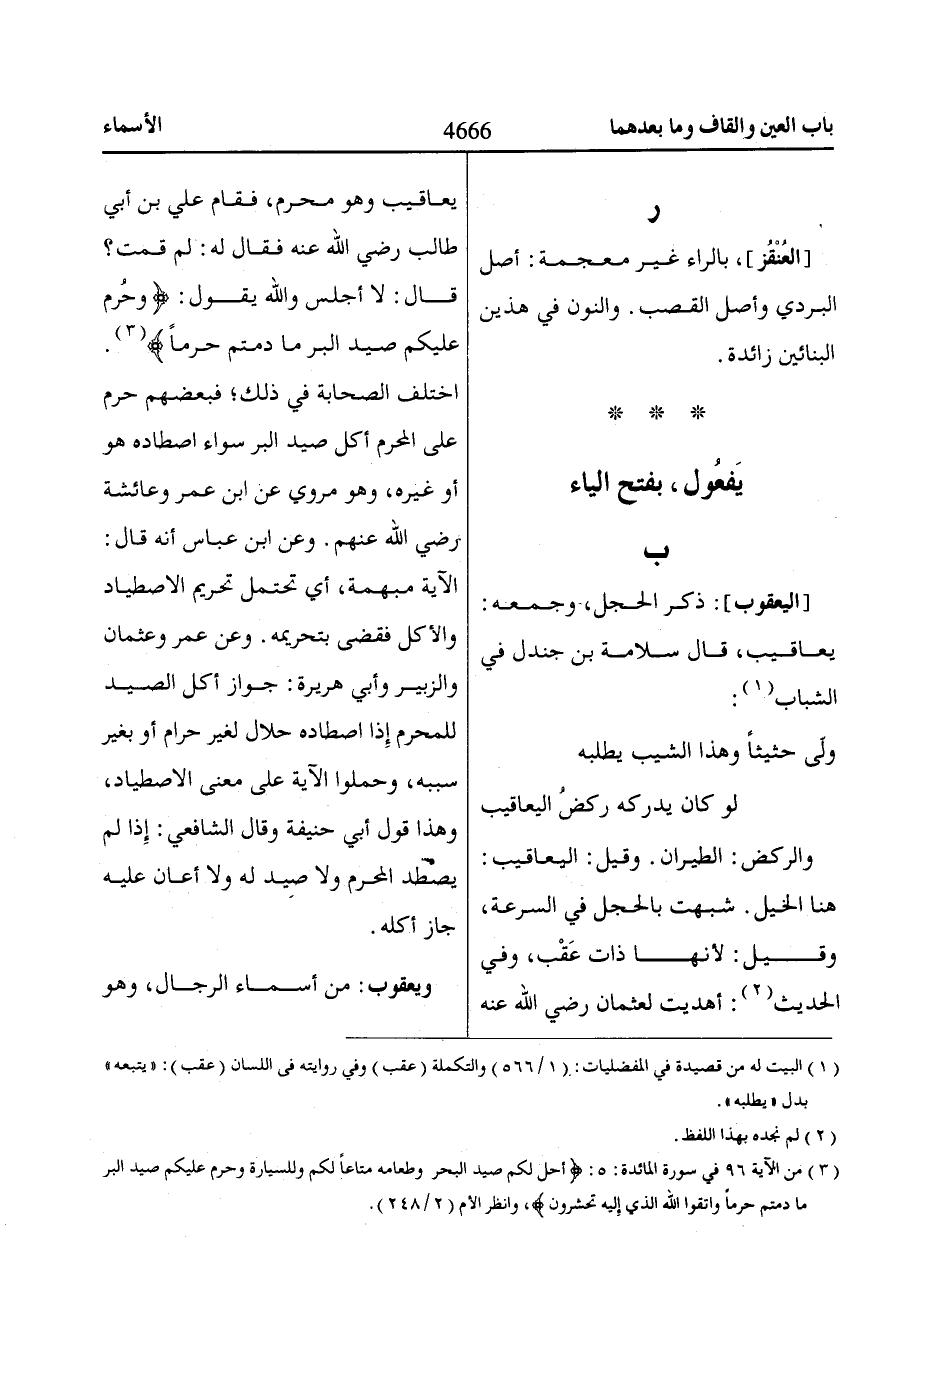 باب العين والقاف وما بعدهما
4666
الأسماء
ر
[العُنْقُز]، بالراء غير معجمة: أصل
البردي وأصل القصب. والنون في هذين
البنائين زائدة.
* * *
يَفعُول، بفتح الياء
ب
[اليعقوب]: ذكر الحجل، وجمعه:
يعاقيب، قال سلامة بن جندل في
الشباب(١):
ولّى حثيثاً وهذا الشيب يطلبه
لو كان يدركه ركضُ اليعاقيب
والركض: الطيران. وقيل: اليعاقيب:
هنا الخيل. شبهت بالحجل في السرعة،
وقيل: لأنها ذات عَقْب، وفي
الحديث(٢): أهديت لعثمان رضي الله عنه
يعاقيب وهو محرم، فقام علي بن أبي
طالب رضي الله عنه فقال له: لم قمت؟
قال: لا أجلس والله يقول: ﴿وحُرم
عليكم صيد البر ما دمتم حرماً﴾(٣).
اختلف الصحابة في ذلك؛ فبعضهم حرم
على المحرم أكل صيد البر سواء اصطاده هو
أو غيره، وهو مروي عن ابن عمر وعائشة
رضي الله عنهم. وعن ابن عباس أنه قال:
الآية مبهمة، أي تحتمل تحريم الاصطياد
والأكل فقضى بتحريمه. وعن عمر وعثمان
والزبير وأبي هريرة: جواز أكل الصيد
للمحرم إذا اصطاده حلال لغير حرام أو بغير
سببه، وحملوا الآية على معنى الاصطياد،
وهذا قول أبي حنيفة وقال الشافعي: إذا لم
يصطَد المحرم ولا صيد له ولا أعان عليه
جاز أكله.
ويعقوب: من أسماء الرجال، وهو
(١) البيت له من قصيدة في المفضليات: (١/٥٦٦) والتكملة (عقب) وفي روايته فى اللسان (عقب): «يتبعه»
بدل «يطلبه».
(٢) لم نجده بهذا اللفظ.
(٣) من الآية ٩٦ في سورة المائدة: ٥: ﴿أحل لكم صيد البحر وطعامه متاعاً لكم وللسيارة وحرم عليكم صيد البر
ما دمتم حرماً واتقوا الله الذي إليه تحشرون﴾، وانظر الأم (٢/٢٤٨).